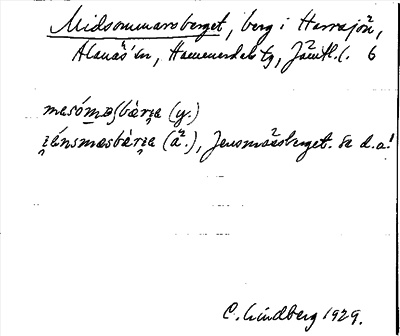 Midsommarsberget, berg i Harrsjön,
Alanäs sn, Hammerdals tg, Jämtl. l. 6
mesómasbærɪa (y.)
iénsmæsbærɪa (ä.), Jensmässberget. Se d.a!
C. Lindberg 1929.